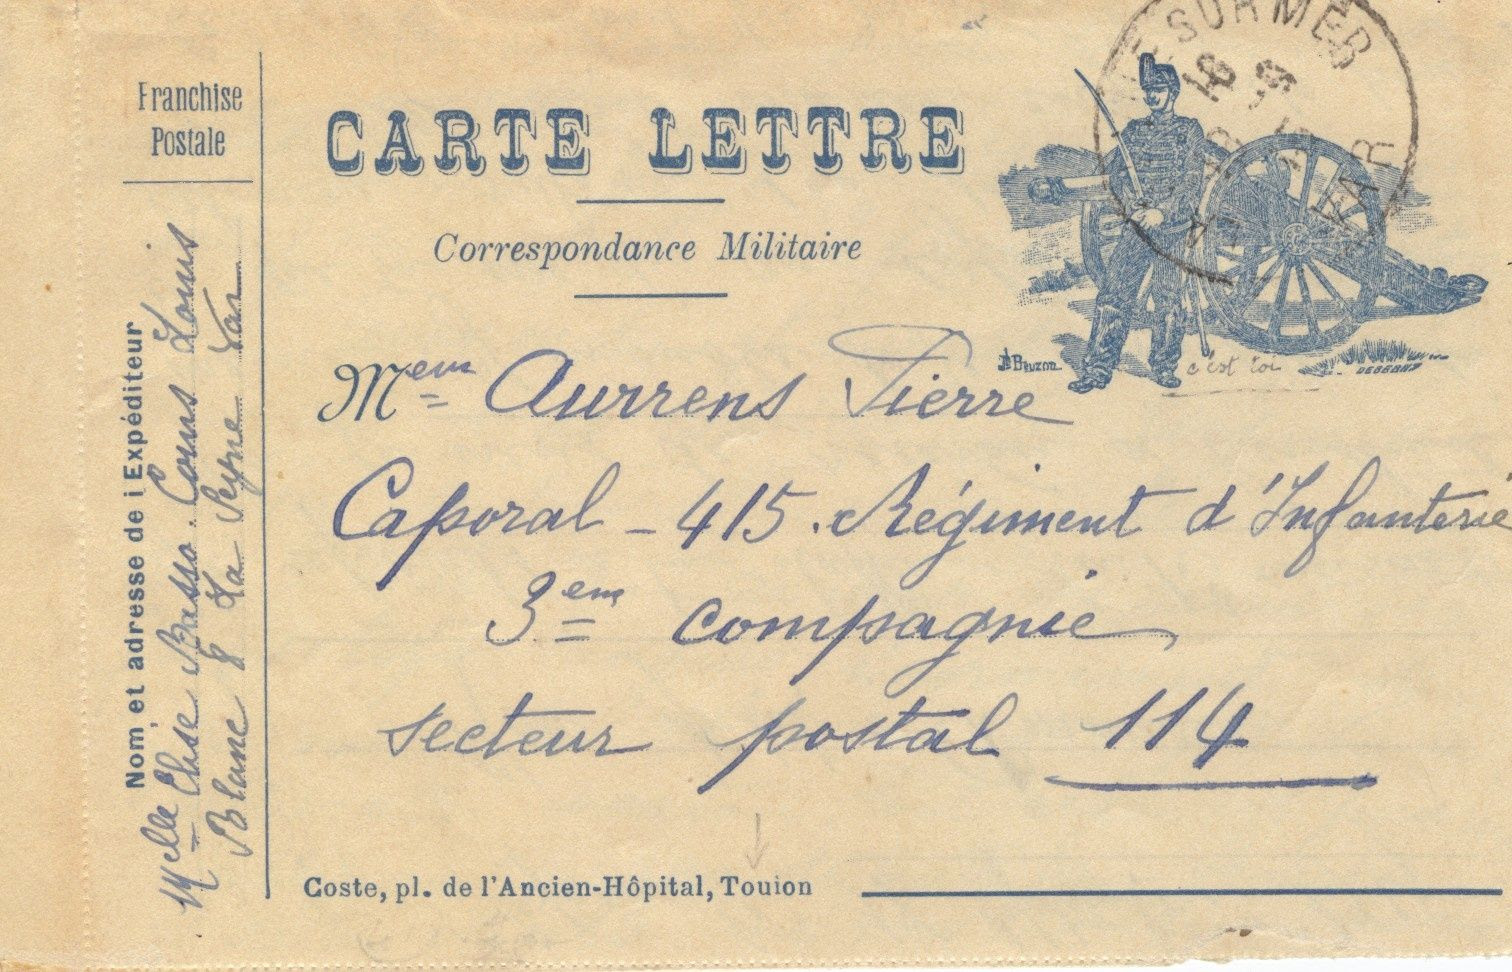 Franchise
Postale
CARTE LETTRE
Correspondance Militaire
Nom, et adresse de i Expéditeur
Melle Elise Basso. Cours Louis
Blanc 8 La Seyne Var
SUR MER
VAR
Beuzon
c'est toi
Mem Aurrens Pierre
Caporal - 415. Régiment d'Infanterie
3em compagnie
secteur postal 114
Coste, pl. de l'Ancien-Hôpital, Touion